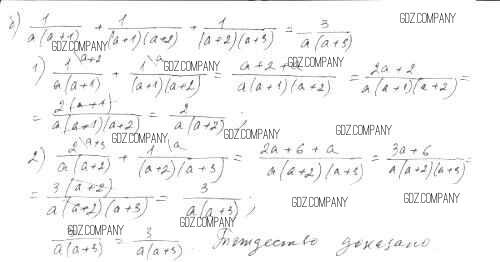 б) 1/(a(a+1)) + 1/((a+1)(a+2)) + 1/((a+2)(a+3)) = 3/(a(a+3))
GDZ.COMPANY
GDZ.COMPANY
1) 1\a+2/(a(a+1)) + 1\a/((a+1)(a+2)) = (a+2+a)/(a(a+1)(a+2)) = (2a+2)/(a(a+1)(a+2)) =
GDZ.COMPANY GDZ.COMPANY
= 2(a+1)/(a(a+1)(a+2)) = 2/(a(a+2));
GDZ.COMPANY GDZ.COMPANY GDZ.COMPANY
2) 2\a+3/(a(a+2)) + 1\a/((a+2)(a+3)) = (2a+6+a)/(a(a+2)(a+3)) = (3a+6)/(a(a+2)(a+3)) =
GDZ.COMPANY
= 3(a+2)/(a(a+2)(a+3)) = 3/(a(a+3));
GDZ.COMPANY GDZ.COMPANY GDZ.COMPANY
GDZ.COMPANY GDZ.COMPANY
3/(a(a+3)) = 3/(a(a+3)). Тождество доказано.
GDZ.COMPANY